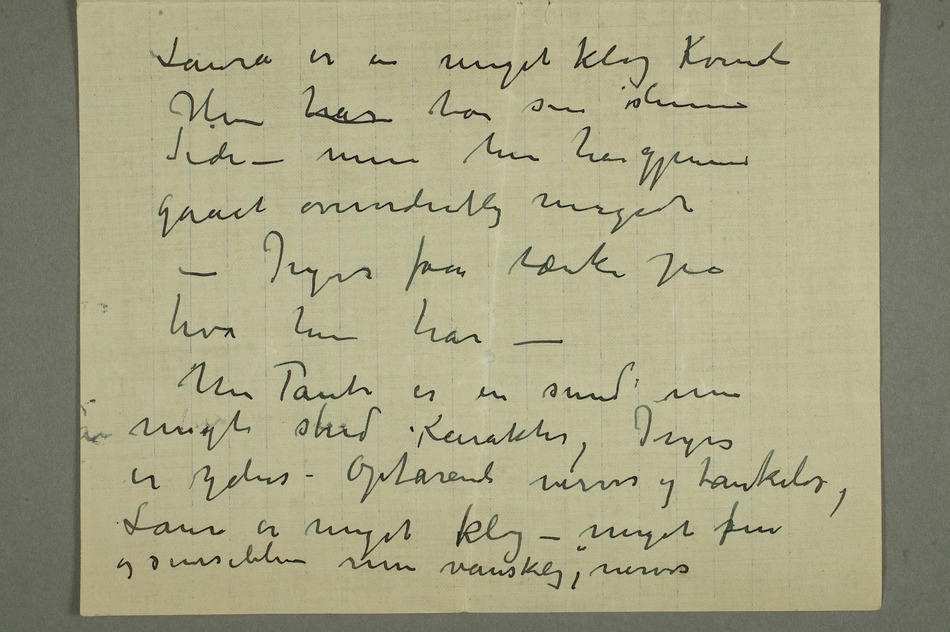 Laura er en meget klog Kvinde
Hun har har sin slemme
Side – men hun har gjennem
gaaet overordentlig meget
– Inger faar tænke på
hva hun har –
Min Tante er en sund men
meget stærd Karakter, Inger
er ydersT Opfarende nervøs og tankeløs,
Laura er meget klog – meget fin
og sensibel men vanskelig, nervøs